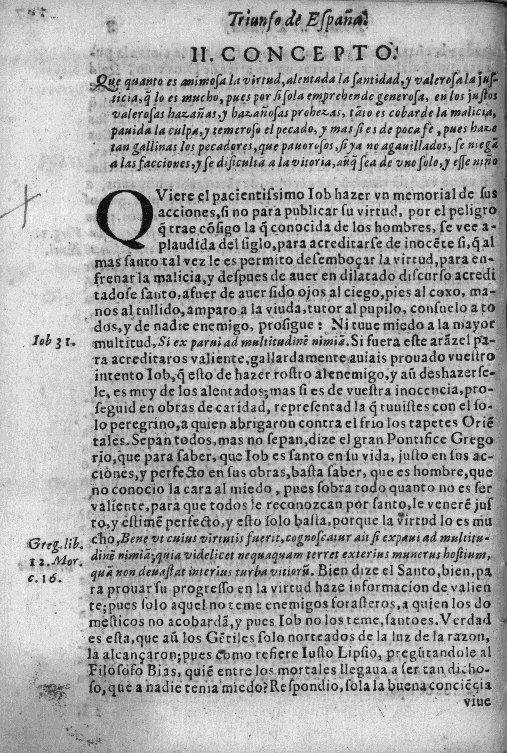 Triunfo de España.
II. CONCEPTO.
Que quanto es animosa la virtud, alentada la santidad, y valerosa la jus-
ticia, q̃ lo es mucho, pues por si sola emprehende generosa, en los justos
valerosas hazañas, y hazañosas prohezas, tãto es cobarde la malicia,
pauida la culpa, y temeroso el pecado, y mas si es de poca fe, pues haze
tan gallinas los pecadores, que pauorosos, si ya no agauillados, se niegã
a las facciones, y se dificultã a la vitoria, aũq̃ sea de vno solo, y esse niño
QViere el pacientissimo Iob hazer vn memorial de sus
acciones, si no para publicar su virtud, por el peligro
q̃ trae cõsigo la q̃ conocida de los hombres, se vee a-
plaudida del siglo, para acreditarse de inocẽte si, q̃ al
mas santo tal vez le es permito desemboçar la virtud, para en-
frenar la malicia, y despues de auer en dilatado discurso acredi
tadose santo, afuer de auer sido ojos al ciego, pies al coxo, ma-
nos al tullido, amparo a la viuda, tutor al pupilo, consuelo a to
dos, y de nadie enemigo, prosigue: Ni tuue miedo a la mayor
Iob 31.
multitud, Si expaui ad multitudinẽ nimiã. Si fuera este arãzel pa-
ra acreditaros valiente, gallardamente auiais prouado vuestro
intento Iob, q̃ esto de hazer rostro al enemigo, y aũ deshazerse-
le, es muy de los alentados; mas si es de vuestra inocencia, pro-
seguid en obras de caridad, representad la q̃ tuuistes con el so-
lo peregrino, a quien abrigaron contra el frio los tapetes Oriẽ
tales. Sepan todos, mas no sepan, dize el gran Pontifice Grego
rio, que para saber, que Iob es santo en su vida, justo en sus ac-
ciones, y perfecto en sus obras, basta saber, que es hombre, que
no conocio la cara al miedo, pues sobra todo quanto no es ser
valiente, para que todos le reconozcan por santo, le venerẽ jus
to, y estimẽ perfecto, y esto solo basta, porque la virtud lo es mu
Greg. lib.
12. Mor.
c. 16.
cho, Bene vt cuius virtutis fuerit, cognoscatur ait si expaui ad multitu-
dinẽ nimiã; quia videlicet nequaquam terret exterius munerus hostium,
quã non deuastat interius turba vitiorũ. Bien dize el Santo, bien, pa
ra prouar su progresso en la virtud haze informacion de valien
te; pues solo aquel no teme enemigos forasteros, a quien los do
mesticos no acobardã, y pues Iob no los teme, santo es. Verdad
es esta, que aũ los Gẽtiles solo norteados de la luz de la razon,
la alcançaron; pues como refiere Iusto Lipsio, pregũtandole al
Filosofo Bias, quiẽ entre los mortales llegaua a ser tan dicho-
so, que a nadie tenia miedo? Respondio, sola la buena conciẽcia
viue